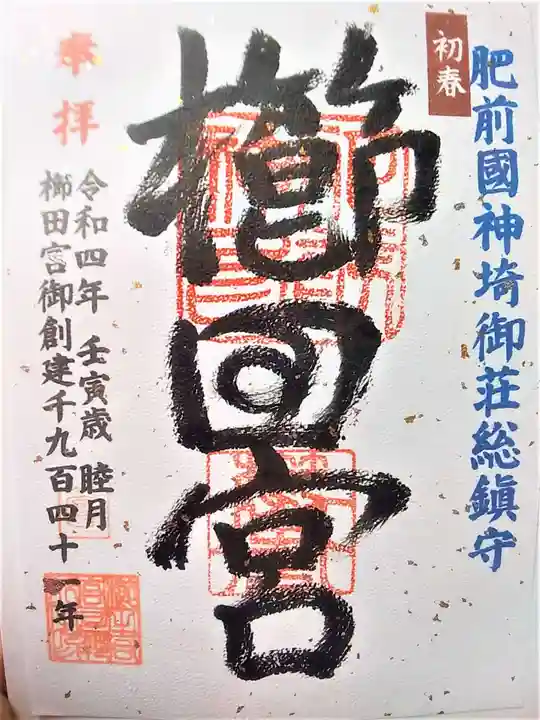 肥前國神埼御荘総鎮守
初春
櫛田宮
奉拝
令和四年 壬寅歳 睦月
櫛田宮御創建千九百四十一年